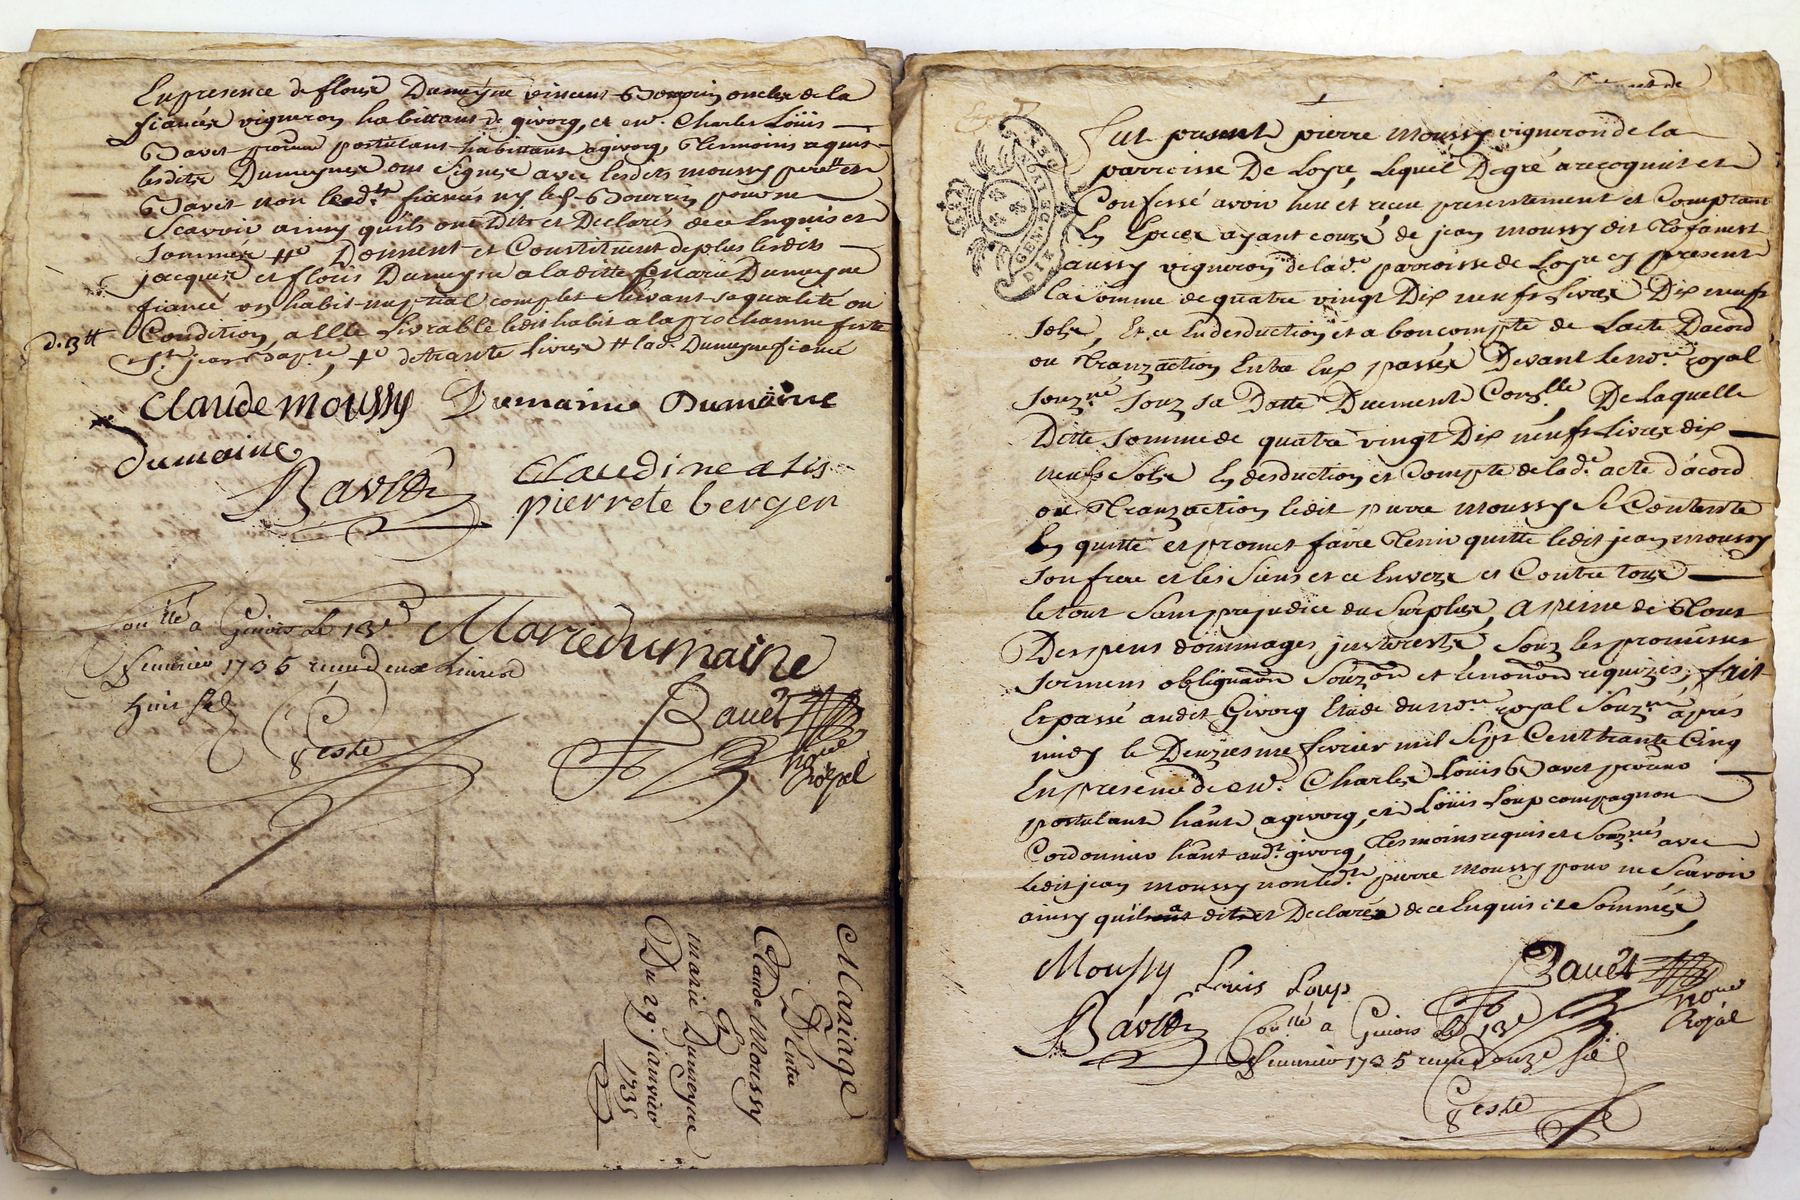 En presence de flouis Dumeyne vincent Bourrin oncles de la
fiancée vigneron habittans de givorg, et en^r. Charles Loüis
Bavet postulant habittant a givorg, Tesmoins requis
lesdits Dumeyne ont signés avec lesdits moussy et
Bavet non led^t. fiancés ny le s^r. Bourrin pour ne
scavoir ainsy qu'ils ont Dits et Declarés de ce Enquis et
sommés Donnent et Constituent de plus lesdits
jacques et floüis Dumeyne a laditte Marie Dumeyne
fiancé un habit nuptial complet suivant sa qualité ou
Condition, a Elle livrable ledit habit a la prochaine feste
d. 3^tt
S^t. jean Bapt^e, de trante livres lad^e Dumeyne fiancé
Claude moussy Dumainne Dumaine
dumaine
Bavet
Claudine alis
pierrete berger
Con^llé a Givors le 13^e
Marie dumaine
Feuvrier 1735 receu deux livres
huit sols
Bauet
no^re
Royal
Mariage
D'Entre
Claude Moussy
Et
Marie Dumeyne
Du 29 janvier
1735
GEN DE LYON
DIX DEN
Fut present pierre moussy vigneron de la
parroisse De Loyre, Lequel De gré a recognut et
Confessé avoir heu et receu presentement et Comptant
En Especes ayant cours de jean moussy dit
aussy vigneron de lad^e. parroisse de Loyre cy present
la somme de quatre vingt Dix neufs livres Dix neufs
sols, Et ce En desduction et a bon compte de L'acte D'acord
ou Tranzaction Entre Eux passés Devant le no^re. royal
souz^né souz sa Datte Duement Con^llé De laquelle
Ditte somme de quatre vingt Dix neufs livres dix
neufs sols En desduction et Compte de lad^e. acte d'acord
ou Tranzaction ledit pierre moussy se Contente
En quitte et promet faire Tenir quitte ledit jean moussy
son frere et les siens et ce Envers et Contre tous
le tout sans prejudice du surplus, a peine de Tous
Despens dommages jnterests, souz les promesses
sermens obliga^on souz^on et renon^on requizes, fait
Et passé audit Givorg Etude du no^re royal souz^né apres
midy le Deuziesme fevrier mil sept Cent trante Cinq
En presence de en^r. Charles Louis Bavet
postulant ha^nt a givorg, et Loüis Loup compagnon
Cordonnier ha^nt aud^t. givorg, Tesmoins requis et souz^nés avec
ledit jean moussy non led^t. pierre moussy pour ne scavoir
ainsy qu'il a dit et Declaré de ce Enquis et sommés
Moussy Louis Loup Bauet
no^re
Royal
Bavet Con^llé a Givors le 13^e
Feuvrier 1735 receu Douze sols